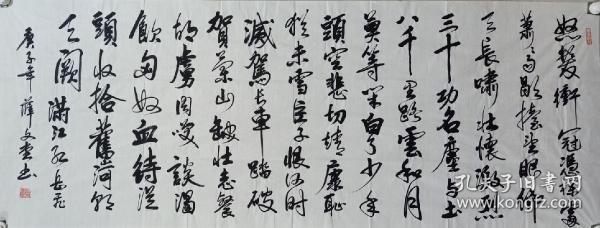 怒发衝冠憑欄處
萧々雨歇抬望眼仰
天長啸壮懷激烈
三十功名塵与土
八千里路雲和月
莫等闲白了少年
頭空悲切靖康耻
猶未雪臣子恨何时
滅駕长車踏破
賀蘭山缺壮志餐
胡虜肉笑談渴
飲匈奴血待從
頭收拾舊河山朝
天阙 满江红岳飞
庚子年 薛文書
孔夫子旧书网